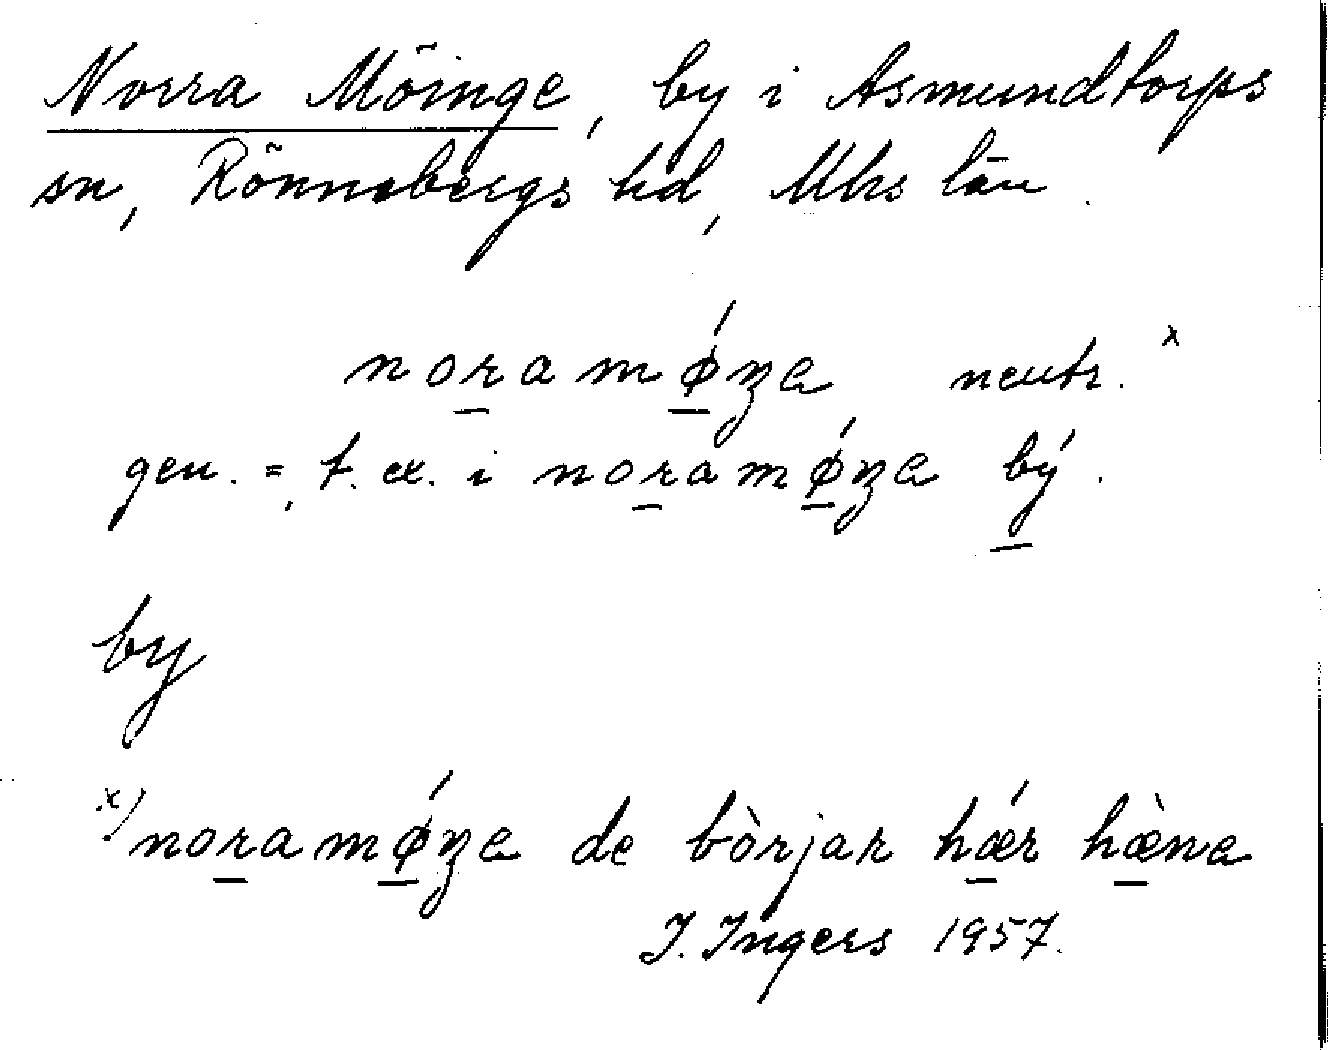 Norra Möinge, by i Asmundtorps
sn, Rönnebergs hd, Mhs län.
noramǿŋe neutr. x
gen. =, t. ex. i noramǿŋe bý.
by
x) noramǿŋe de bòrjar hǽr hæ̀ne
I. Ingers 1957.